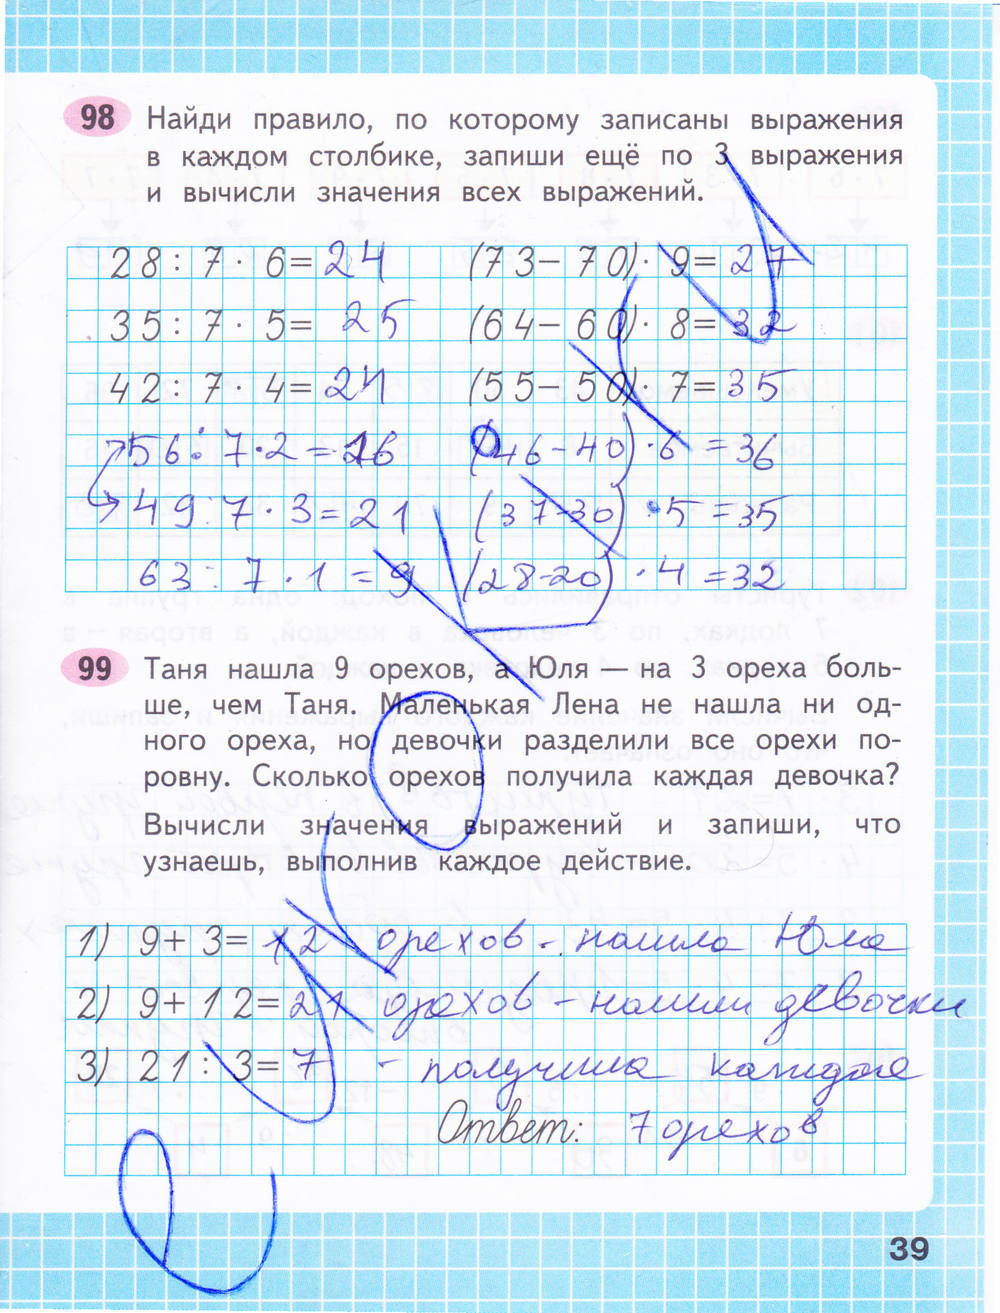 98 Найди правило, по которому записаны выражения
в каждом столбике, запиши ещё по 3 выражения
и вычисли значения всех выражений.
28 : 7 · 6 = 24 (73 – 70) · 9 = 27
35 : 7 · 5 = 25 (64 – 60) · 8 = 32
42 : 7 · 4 = 24 (55 – 50) · 7 = 35
56 : 7 · 2 = 16 (46 – 40) · 6 = 36
49 : 7 · 3 = 21 (37 – 30) · 5 = 35
63 : 7 · 1 = 9 (28 – 20) · 4 = 32
99 Таня нашла 9 орехов, а Юля – на 3 ореха боль-
ше, чем Таня. Маленькая Лена не нашла ни од-
ного ореха, но девочки разделили все орехи по-
ровну. Сколько орехов получила каждая девочка?
Вычисли значения выражений и запиши, что
узнаешь, выполнив каждое действие.
1) 9 + 3 = 12 орехов - нашла Юля
2) 9 + 12 = 21 орехов - нашли девочки
3) 21 : 3 = 7 - получила каждая
Ответ: 7 орехов
39